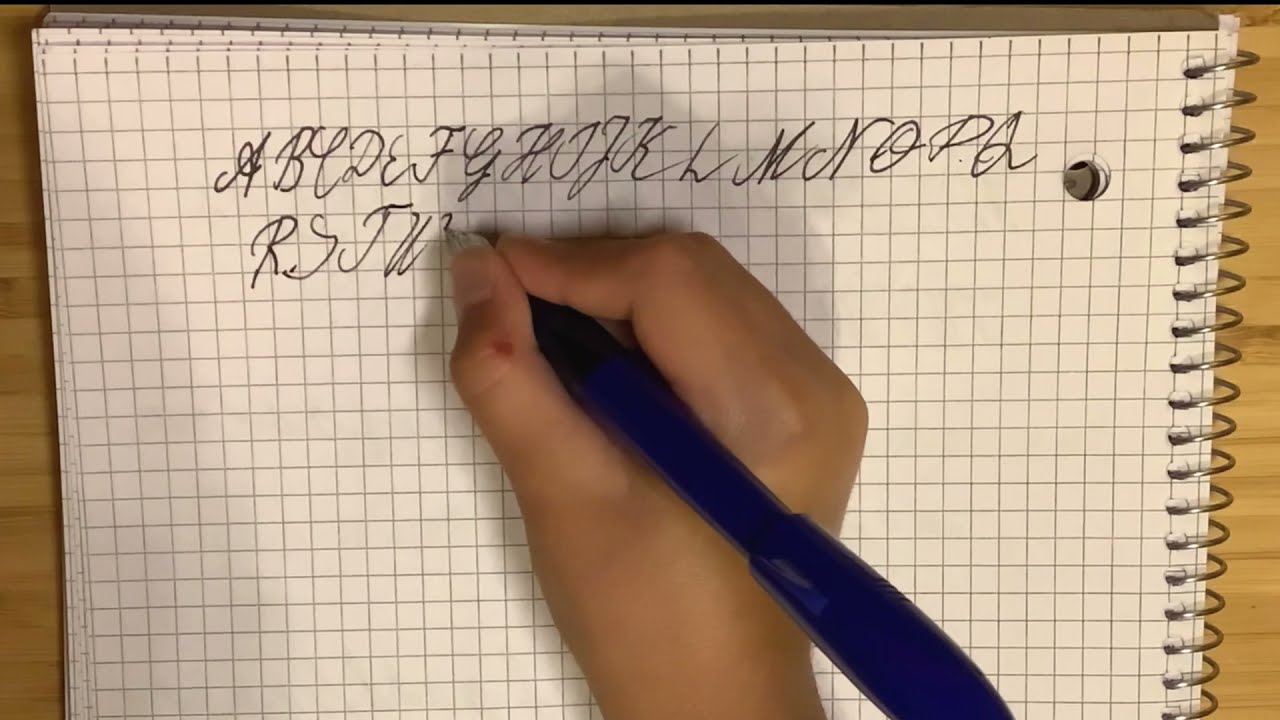 A B C D E F G H I J K L M N O P Q
R S T U